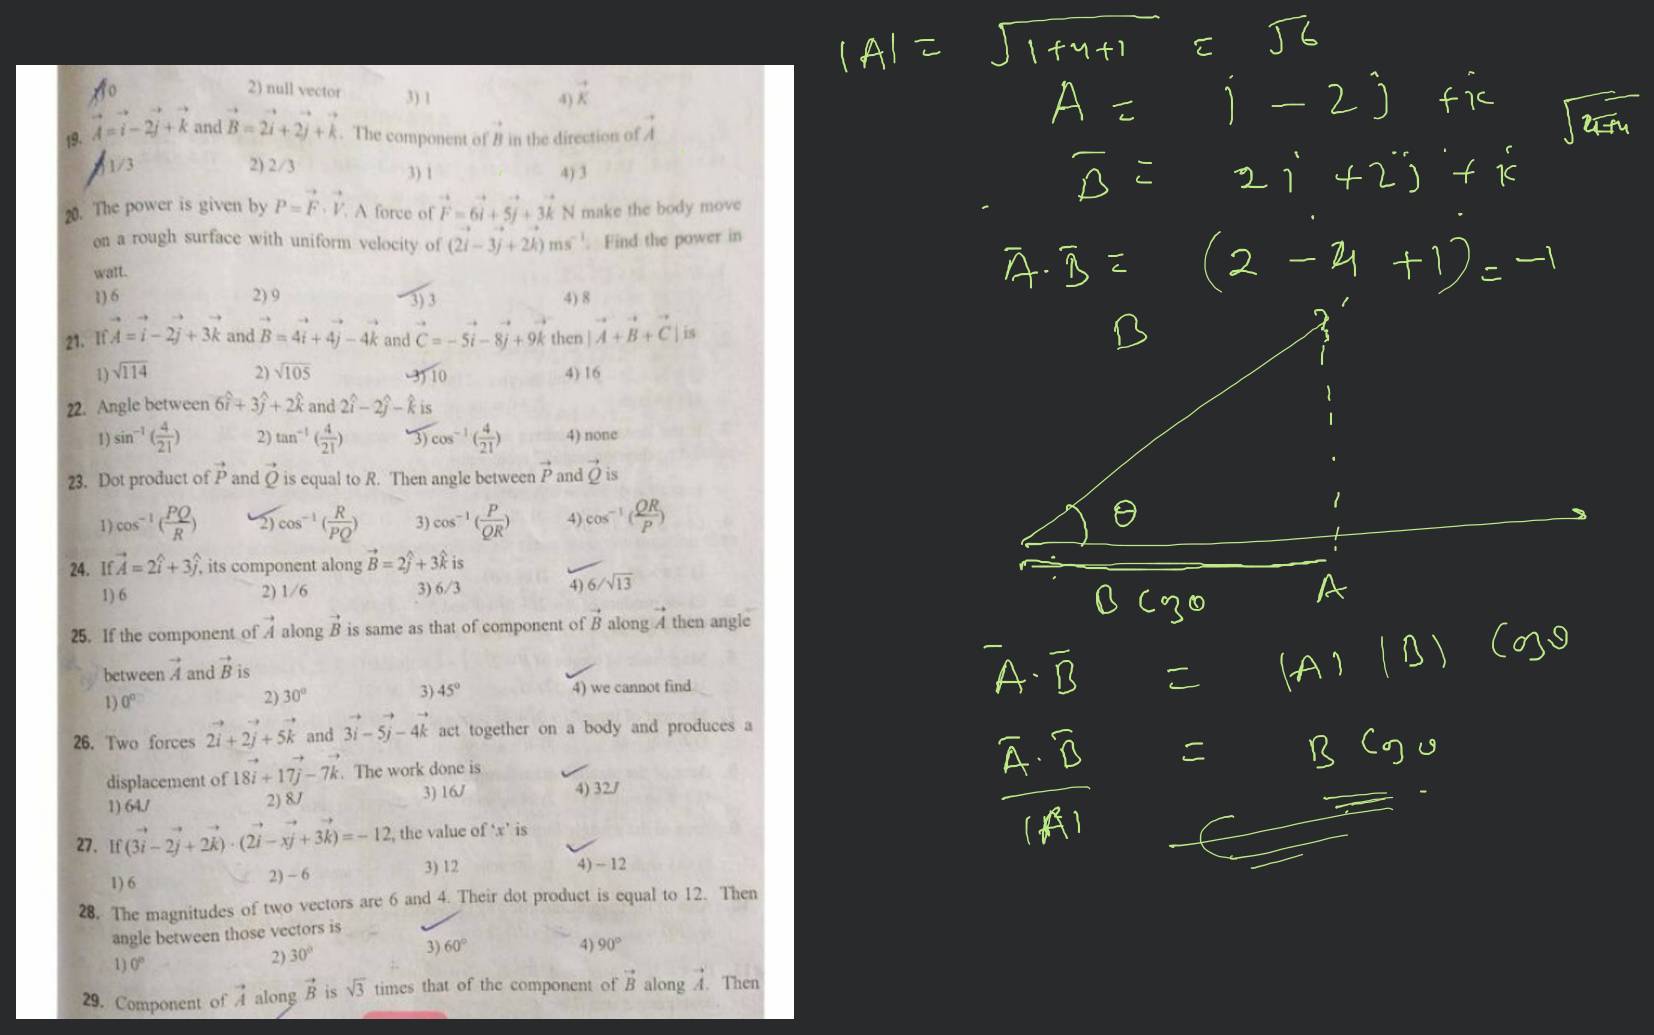 1) 0 2) null vector 3) 1 4) K⃗
19. A⃗ = i⃗ − 2j⃗ + k⃗ and B⃗ = 2i⃗ + 2j⃗ + k⃗. The component of B⃗ in the direction of A⃗
1) 1/3 2) 2/3 3) 1 4) 3
20. The power is given by P = F⃗ . V⃗. A force of F⃗ = 6i⃗ + 5j⃗ + 3k⃗ N make the body move
on a rough surface with uniform velocity of (2i⃗ − 3j⃗ + 2k⃗) ms⁻¹. Find the power in
watt.
1) 6 2) 9 3) 3 4) 8
21. If A⃗ = i⃗ − 2j⃗ + 3k⃗ and B⃗ = 4i⃗ + 4j⃗ − 4k⃗ and C⃗ = − 5i⃗ − 8j⃗ + 9k⃗ then | A⃗ + B⃗ + C⃗ | is
1) √114 2) √105 3) 10 4) 16
22. Angle between 6î + 3ĵ + 2k̂ and 2î − 2ĵ − k̂ is
1) sin⁻¹ (4/21) 2) tan⁻¹ (4/21) 3) cos⁻¹ (4/21) 4) none
23. Dot product of P⃗ and Q⃗ is equal to R. Then angle between P⃗ and Q⃗ is
1) cos⁻¹ (PQ/R) 2) cos⁻¹ (R/PQ) 3) cos⁻¹ (P/QR) 4) cos⁻¹ (QR/P)
24. If A⃗ = 2î + 3ĵ, its component along B⃗ = 2ĵ + 3k̂ is
1) 6 2) 1/6 3) 6/3 4) 6/√13
25. If the component of A⃗ along B⃗ is same as that of component of B⃗ along A⃗ then angle
between A⃗ and B⃗ is
1) 0° 2) 30° 3) 45° 4) we cannot find
26. Two forces 2i⃗ + 2j⃗ + 5k⃗ and 3i⃗ − 5j⃗ − 4k⃗ act together on a body and produces a
displacement of 18i⃗ + 17j⃗ − 7k⃗. The work done is
1) 64J 2) 8J 3) 16J 4) 32J
27. If (3i⃗ − 2j⃗ + 2k⃗) . (2i⃗ − xj⃗ + 3k⃗) = − 12, the value of 'x' is
1) 6 2) − 6 3) 12 4) − 12
28. The magnitudes of two vectors are 6 and 4. Their dot product is equal to 12. Then
angle between those vectors is
1) 0° 2) 30° 3) 60° 4) 90°
29. Component of A⃗ along B⃗ is √3 times that of the component of B⃗ along A⃗. Then
|A| = √1+4+1 = √6
A = i − 2j + k
B̄ = 2i + 2j + k
Ā.B̄ = (2 − 4 + 1) = −1
B
θ
B cosθ A
Ā.B̄ = |A| |B| cosθ
Ā.B̄ = B cosθ
|A|